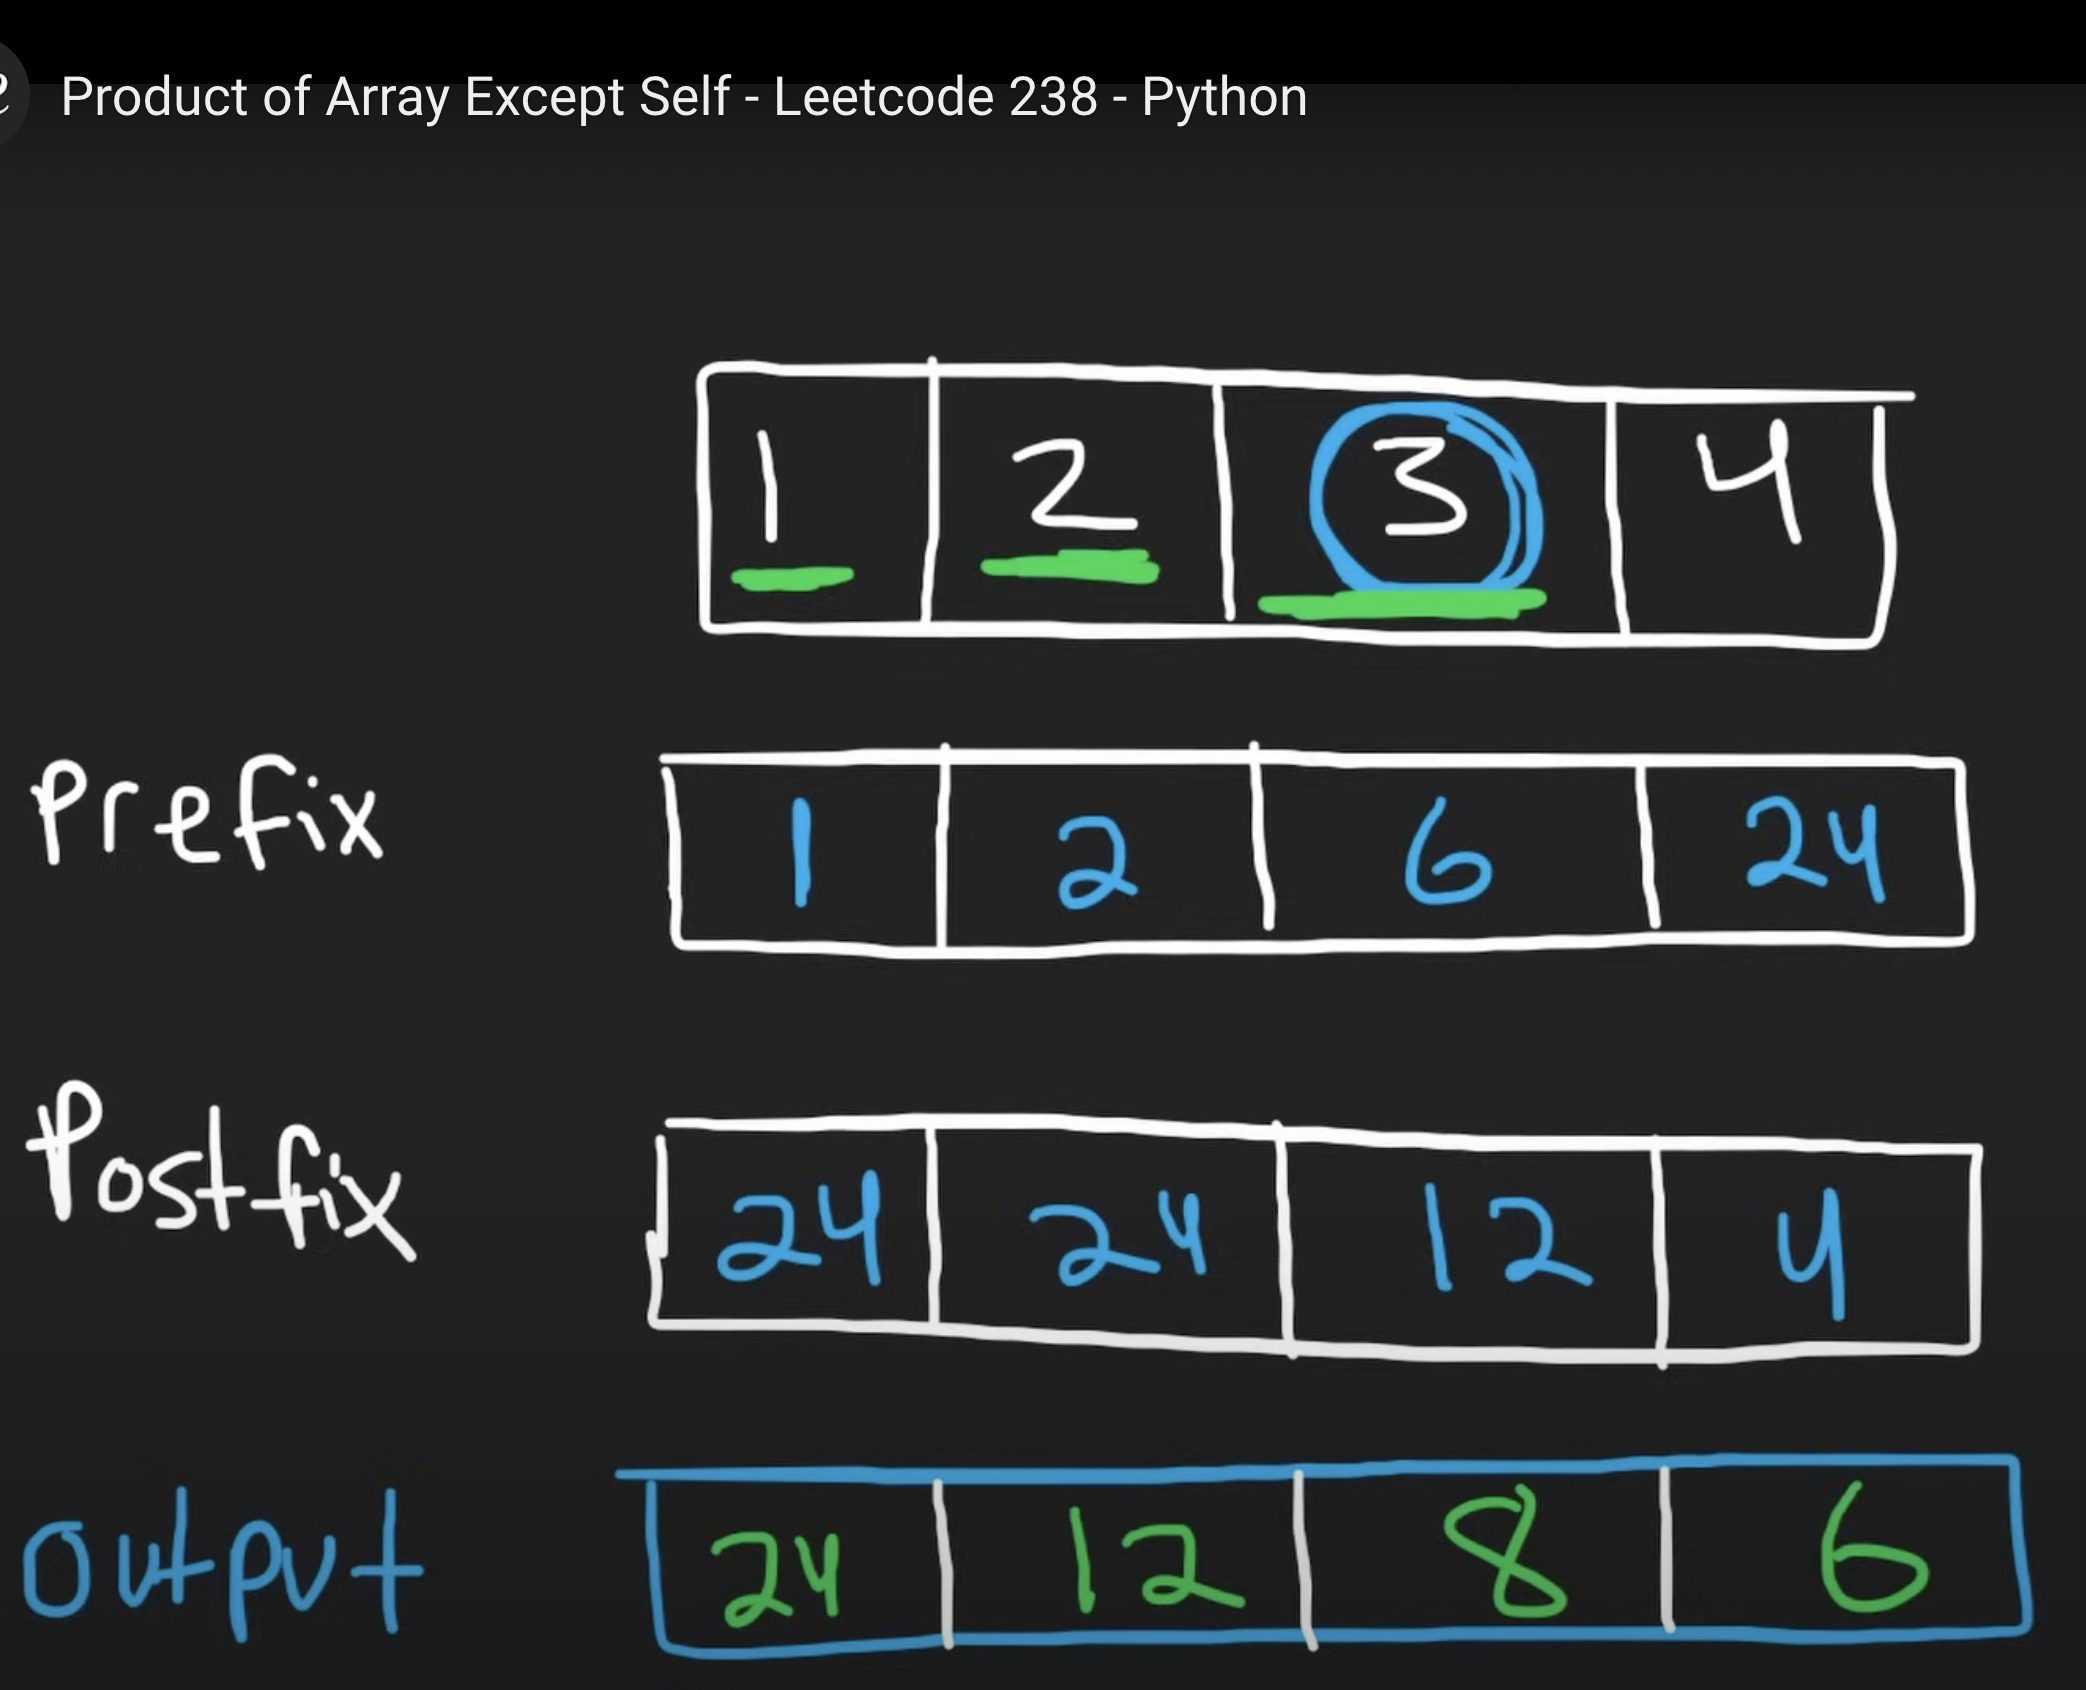 Product of Array Except Self - Leetcode 238 - Python
1 2 3 4
Prefix 1 2 6 24
Postfix 24 24 12 4
Output 24 12 8 6